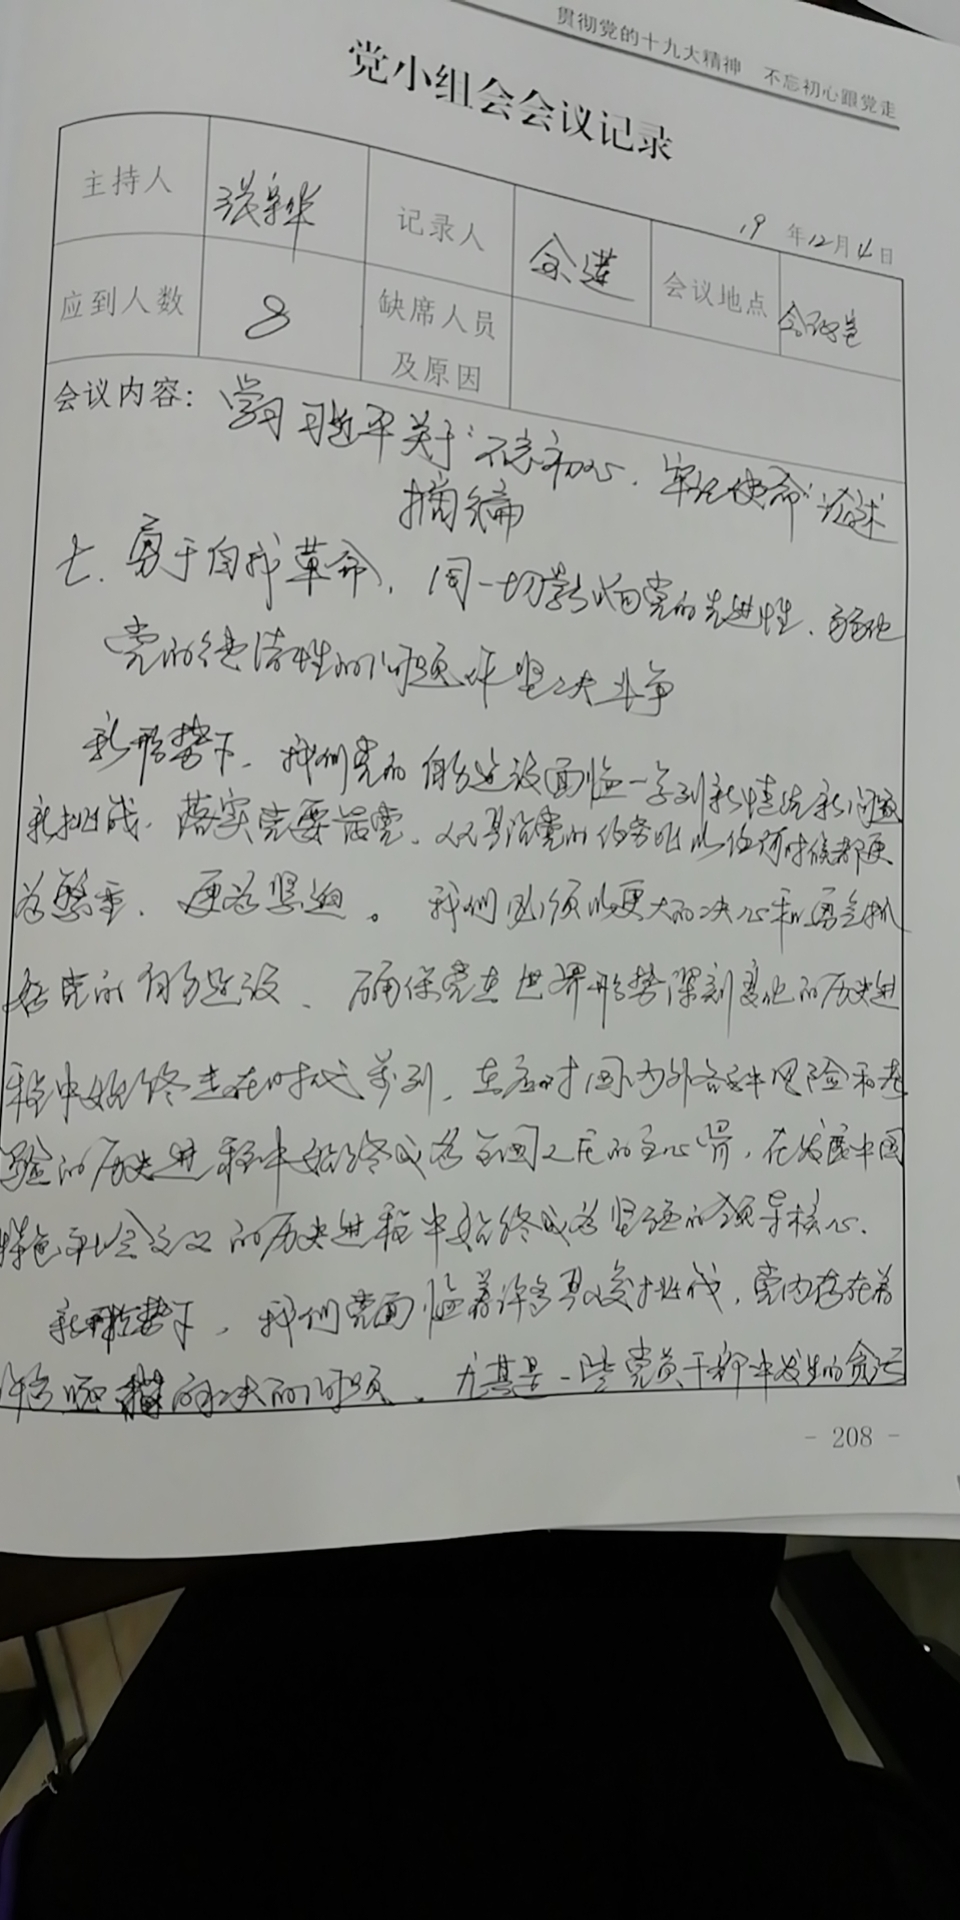 贯彻党的十九大精神 不忘初心跟党走
党小组会会议记录
19年12月4日
主持人 张宗华 记录人 余进 会议地点 会议室
应到人数 8 缺席人员及原因
会议内容：学习习近平关于“不忘初心、牢记使命”论述
摘编
七、勇于自我革命，同一切影响党的先进性、弱化
党的纯洁性的问题作坚决斗争
新形势下，我们党的自身建设面临一系列新情况新问题
新挑战，落实党要管党、从严治党的任务比以往任何时候都更
为繁重、更为紧迫。我们必须以更大的决心和勇气抓
好党的自身建设、确保党在世界形势深刻变化的历史进
程中始终走在时代前列，在应对国内外各种风险和考
验的历史进程中始终成为全国人民的主心骨，在发展中国
特色社会主义的历史进程中始终成为坚强的领导核心.
新形势下，我们党面临着许多严峻挑战，党内存在着
许多亟待解决的问题、尤其是一些党员干部中发生的贪污
- 208 -